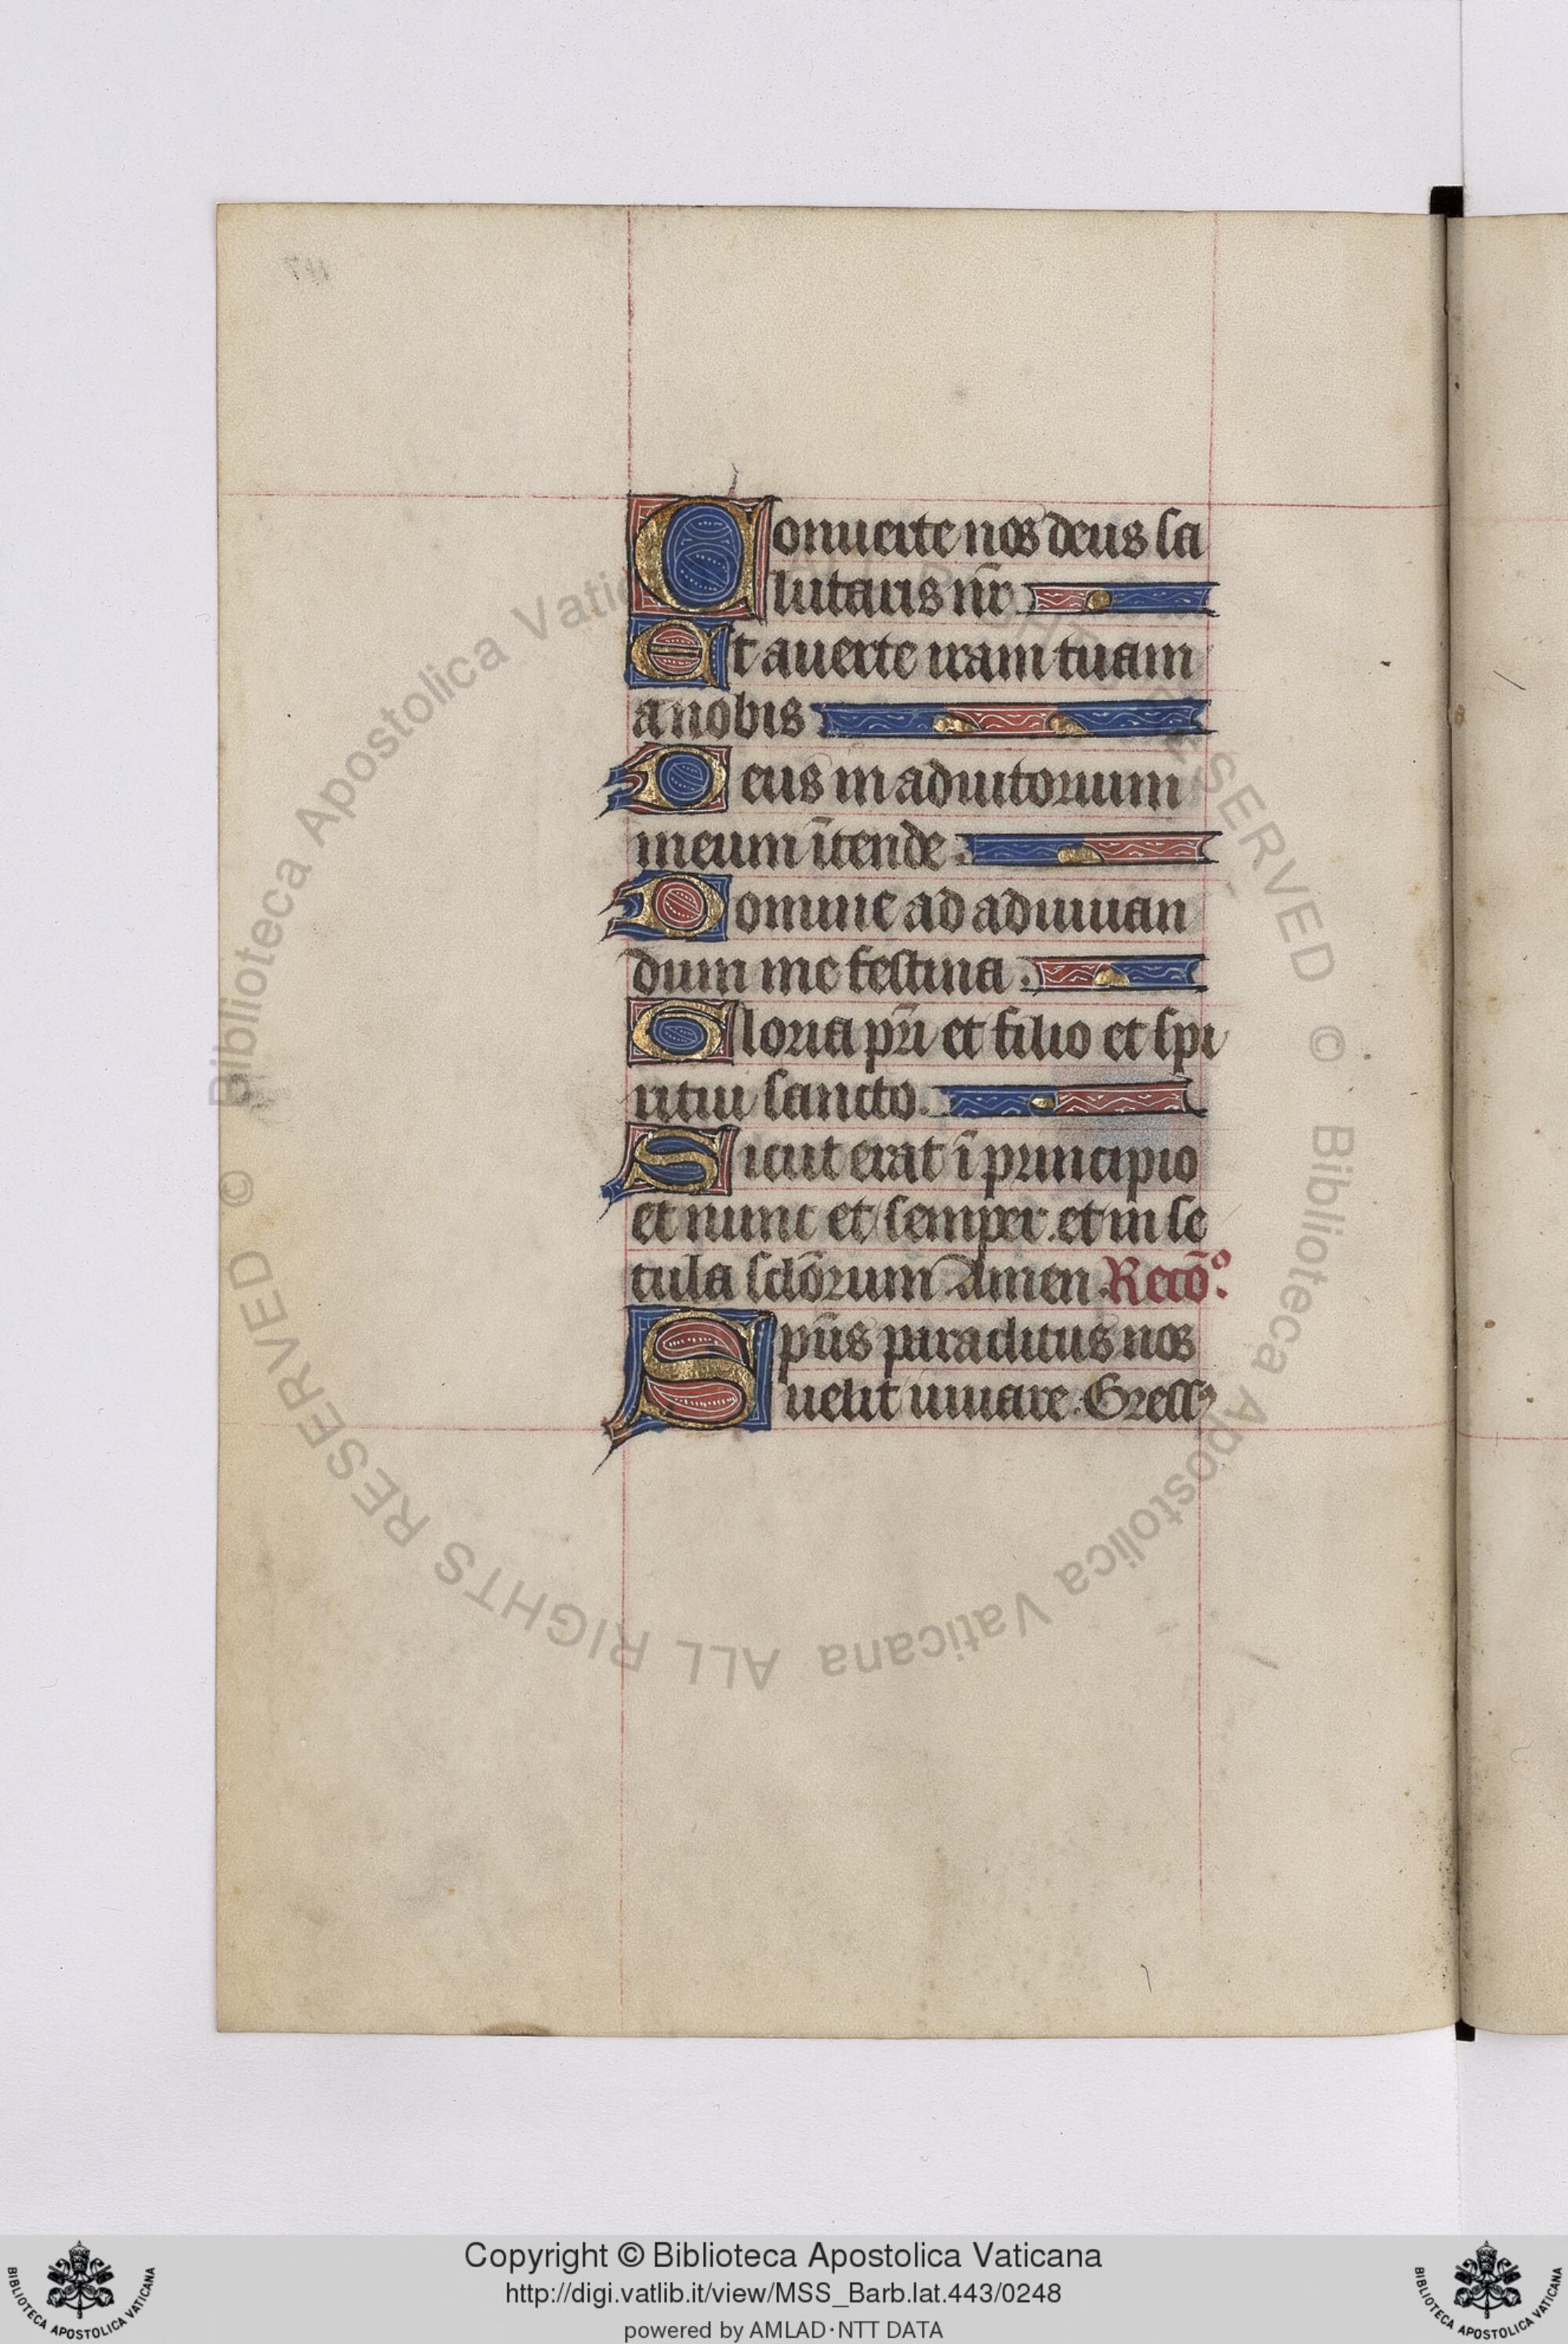 Conuerte nos deus sa
lutaris nr̄
Et auerte iram tuam
a nobis
Deus in adiutorium
meum ītende.
Domine ad adiuuan
dum me festina.
Gloria pr̄i et filio et spi
ritui sancto.
Sicut erat ī principio
et nunc et semper. et in se
cula sclōrum Amen. Recō⁰.
Spūs paraclitus nos
uelit iuuare. Gressꝰ
© Biblioteca Apostolica Vaticana ALL RIGHTS RESERVED © Biblioteca Apostolica Vaticana ALL RIGHTS RESERVED
Copyright © Biblioteca Apostolica Vaticana
http://digi.vatlib.it/view/MSS_Barb.lat.443/0248
powered by AMLAD·NTT DATA
BIBLIOTECA APOSTOLICA VATICANA
BIBLIOTECA APOSTOLICA VATICANA